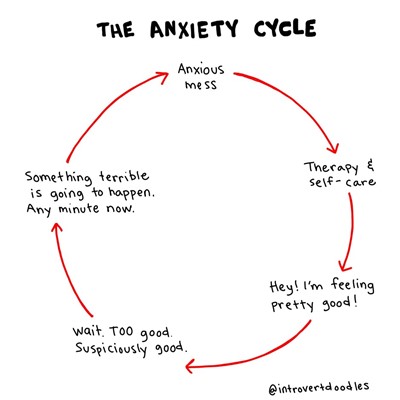 THE ANXIETY CYCLE
Anxious
mess
Therapy &
self-care
Hey! I'm feeling
pretty good!
Wait. TOO good.
Suspiciously good.
Something terrible
is going to happen.
Any minute now.
@introvertdoodles